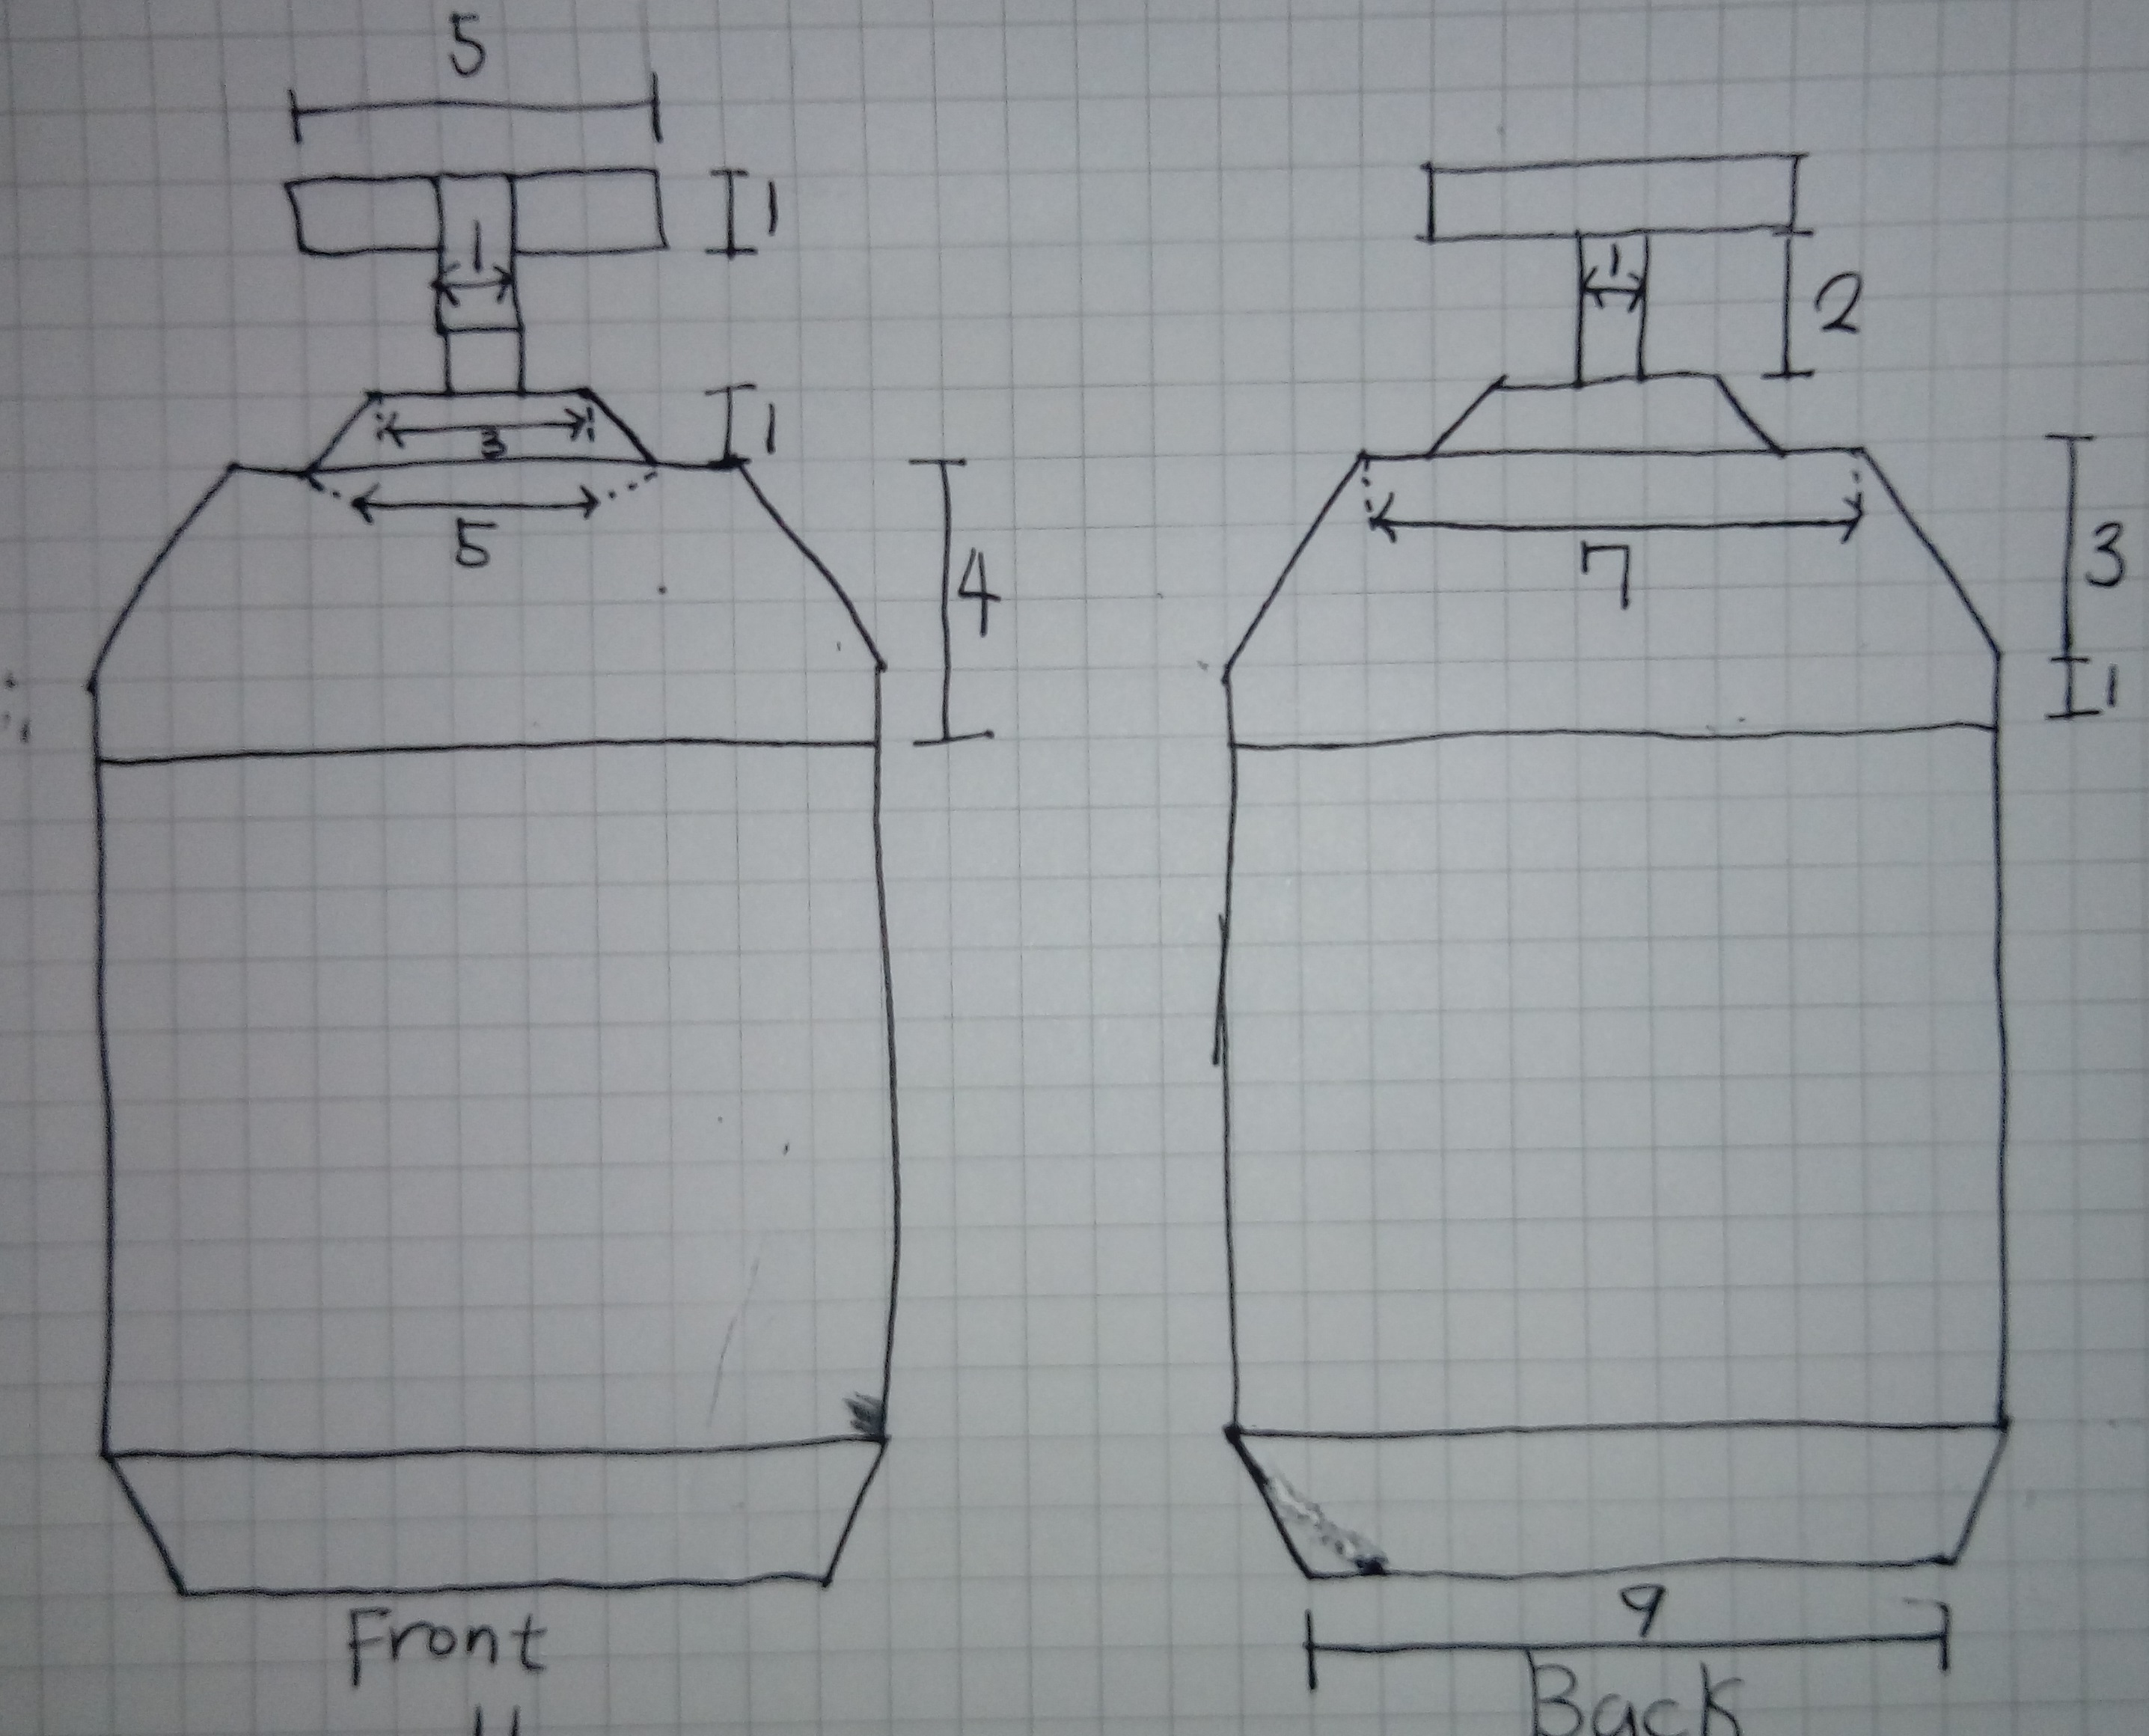 5
1
1
3
1
5
4
Front
11
1
2
7
3
1
9
Back